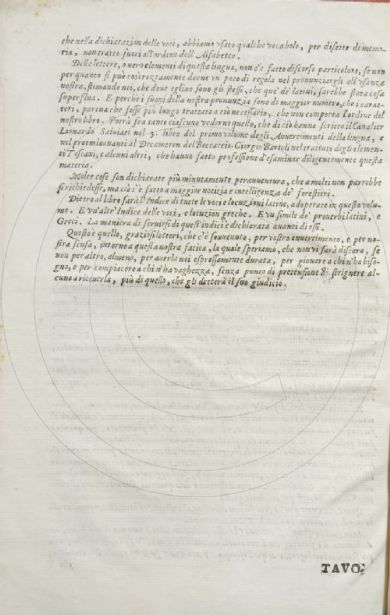 che nella dichiarazion delle voci, abbiamo vsato qualche vocabolo, per difetto di memoria, non tratto fuori all'ordine dell'Alfabetto.
Delle lettere, o vero elementi di questa lingua, non s'è fatto discorso particolare, se non
per quanto si può cosi rozzamente darne vn poco di regola nel pronunziargli all'vsanza
nostra, stimando noi, che doue eglino sono gli stessi, che que' de' latini, sarebbe stata cosa
superflua. E perche i suoni della nostra pronunzia sono di maggior numero, che i caratteri, pareua che fosse più lungo trattato a ciò necessario, che non comporta l'ordine del
nostro libro. Potrà fra tanto ciascuno vederne quello, che di ciò hanno scritto il Caualier
Lionardo Saluiati nel 3. libro del primo volume degli Auuertimenti della lingua, e
nel proemio auanti al Decameron del Boccaccio. Giorgio Bartoli nel trattato degli elementi Toscani, e alcuni altri, che hanno fatto professione d'esaminar diligentemente questa
materia.
Molte cose son dichiarate più minutamente perauuentura, che a molti non parrebbe
si richiedesse, ma ciò s'è fatto a maggior notizia e intelligenza de' forestieri.
Dietro al libro sarà l'Indice di tutte le voci e locuzioni latine, adoperate in questo volume. E vn'altr'Indice delle voci, e locuzion greche. E vn simile de' prouerbi latini, e
Greci. La maniera di seruirsi di quest'indici è dichiarata auanti di essi.
Questo è quello, graziosi lettori, che c'è souuenuto, per vostro auuertimento, e per nostra scusa, intorno a questa nostra fatica, la quale speriamo, che non vi sarà discara, se
non per altro, almeno, per auerla noi espressamente durata, per giouare a chi n'ha bisogno, e per compiacere a chi n'ha vaghezza, senza punto di pretensione di strignere alcuno a riceuerla, più di quello, che gli detterà il suo giudicio.
TAVO-